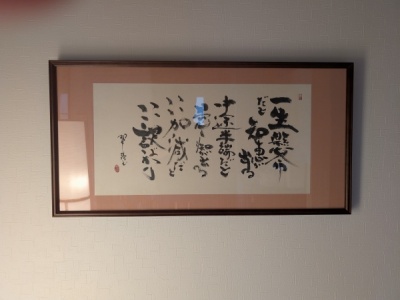 一生懸命
だと知恵が
出る
中途半端だと
愚痴が出る
いい加減だと
いい訳ばかり